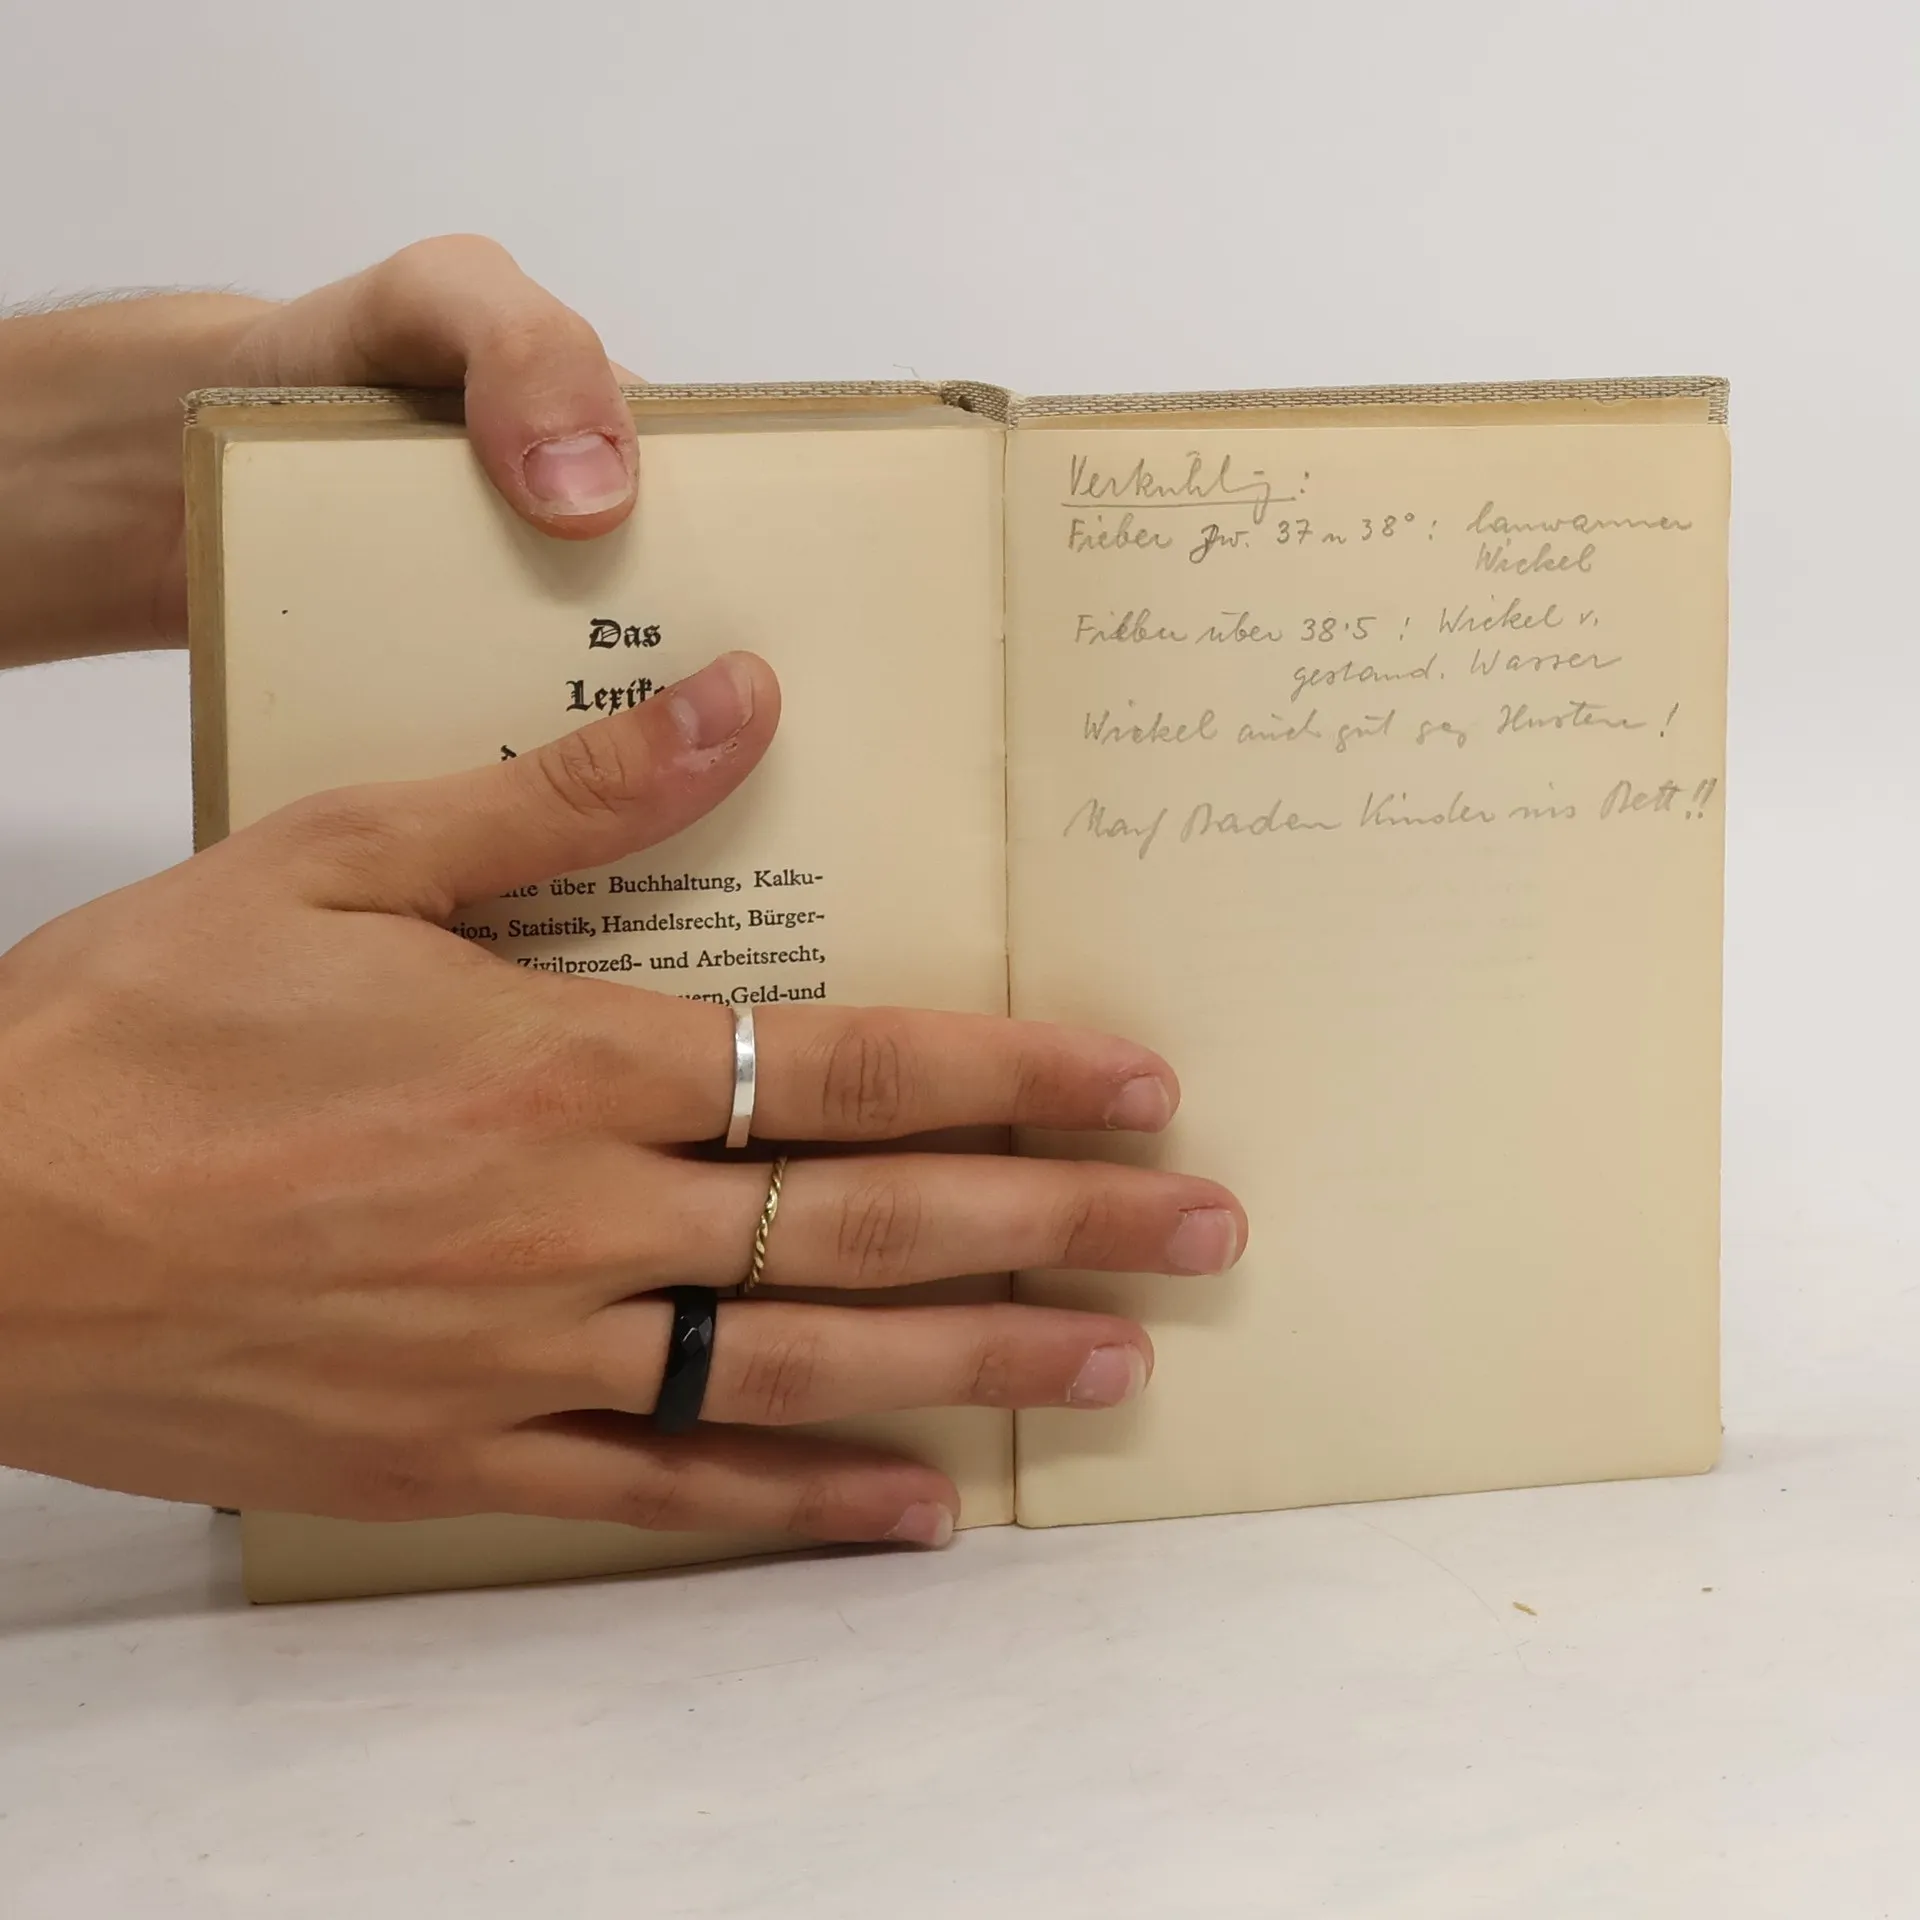 Das
Lexik
d
über Buchhaltung, Kalku-
tion, Statistik, Handelsrecht, Bürger-
Zivilprozeß- und Arbeitsrecht,
uern, Geld-und
Verkühlg:
Fieber zw. 37 u 38°: lauwarmer
Wickel
Fieber über 38·5: Wickel v.
gestand. Wasser
Wickel auch gut geg Husten!
Nach Baden Kinder ins Bett!!